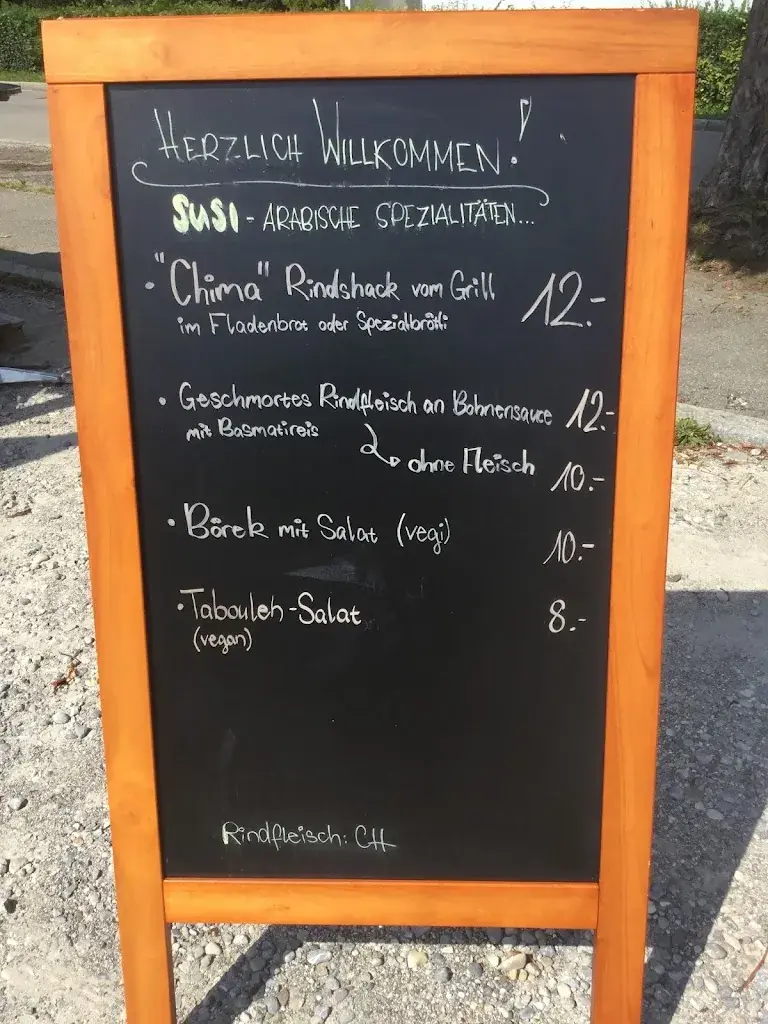 HERZLICH WILLKOMMEN!
SUSI - ARABISCHE SPEZIALITÄTEN...
• "Chima" Rindshack vom Grill 12.-
im Fladenbrot oder Spezialbrötli
• Geschmortes Rindfleisch an Bohnensauce 12.-
mit Basmatireis
ohne Fleisch 10.-
• Börek mit Salat (vegi) 10.-
• Tabouleh-Salat 8.-
(vegan)
Rindfleisch: CH